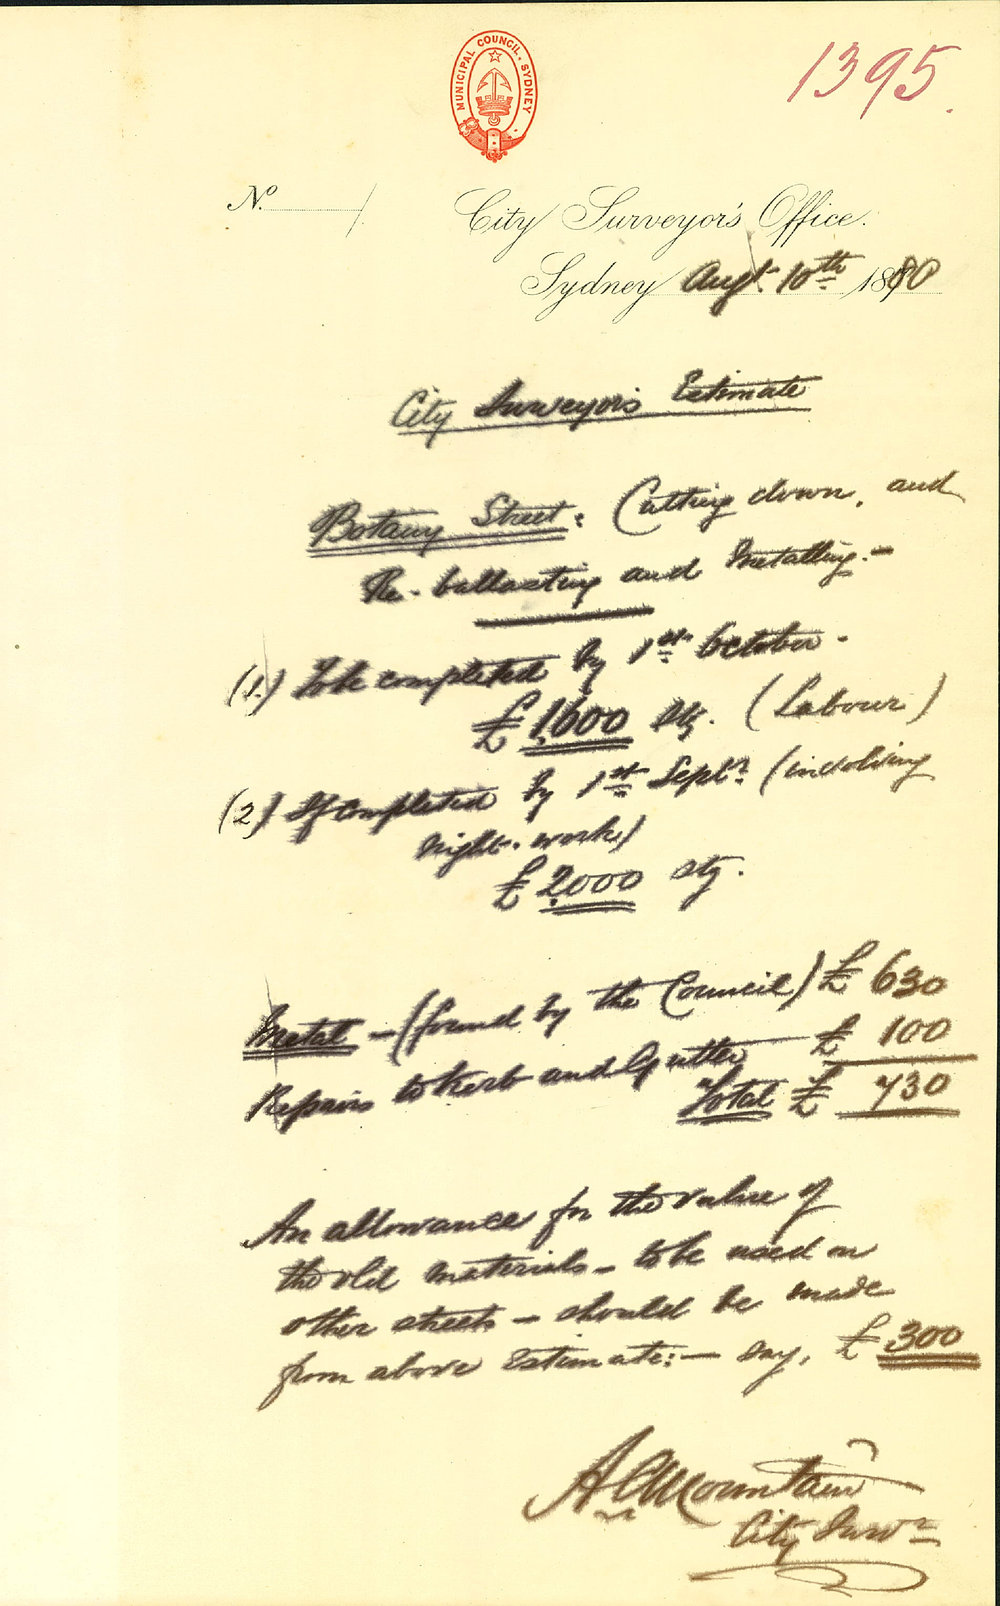 MUNICIPAL COUNCIL. SYDNEY.
1395.
No. /.
City Surveyor's Office.
Sydney Augt. 10th 1880
City Surveyor's Estimate
Botany Street: Cutting down, and
Re-ballasting and Metalling:—
(1.) To be completed by 1st October -
£1,600 stg. (Labour)
(2) If completed by 1st Septr. (involving
night-work)
£2,000 stg.
Metal — (found by the Council) £ 630
Repairs to Kerb and Gutter — £ 100
Total £ 730
An allowance for the value of
the old materials — to be used on
other streets — should be made
from above Estimate:— say, £300
A C Mountain
City Survr.